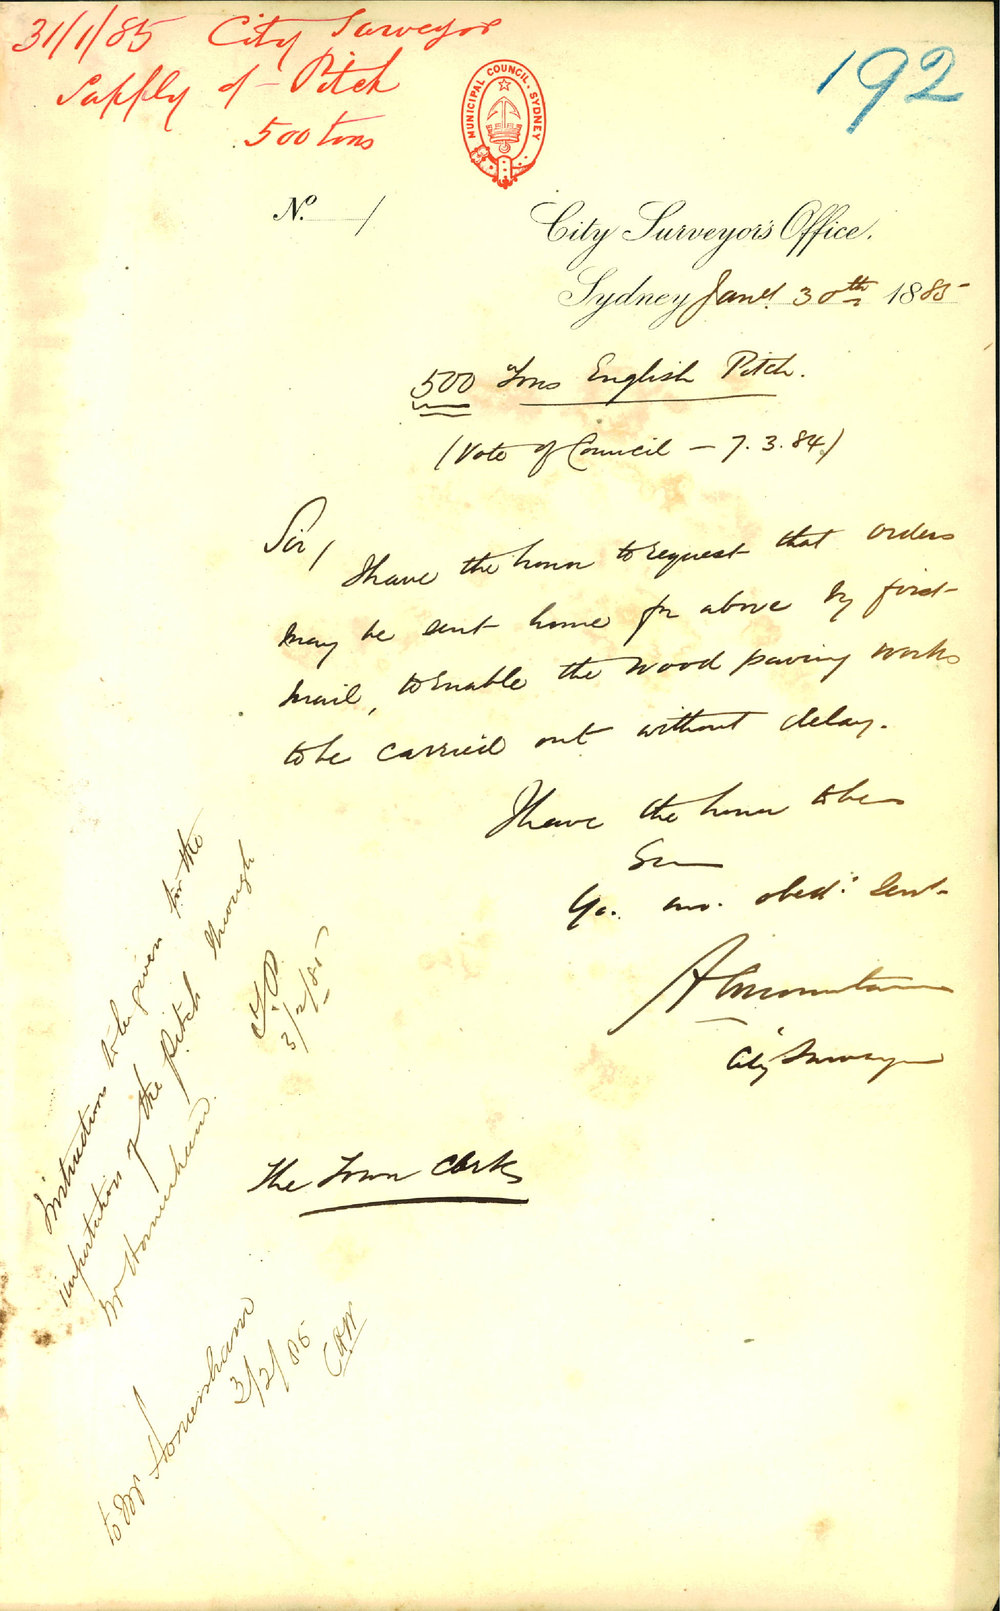 31/1/85 City Surveyor
Supply of Pitch
500 tons
192
MUNICIPAL COUNCIL. SYDNEY
No. /
City Surveyor's Office.
Sydney Jany 30th 1885
500 Tons English Pitch.
(Vote of Council — 7.3.84)
Sir/
I have the honor to request that orders
may be sent home for above by first
mail, to enable the wood paving works
to be carried out without delay.
I have the honor to be
Sir
Yr. mo. obedt. Servt.
A C Mountain
City Surveyor
The Town Clerk
Instructions to be given for the
importation of the pitch through
Mr Hornersham.
3/2/85
to Mr Hornersham
3/2/85